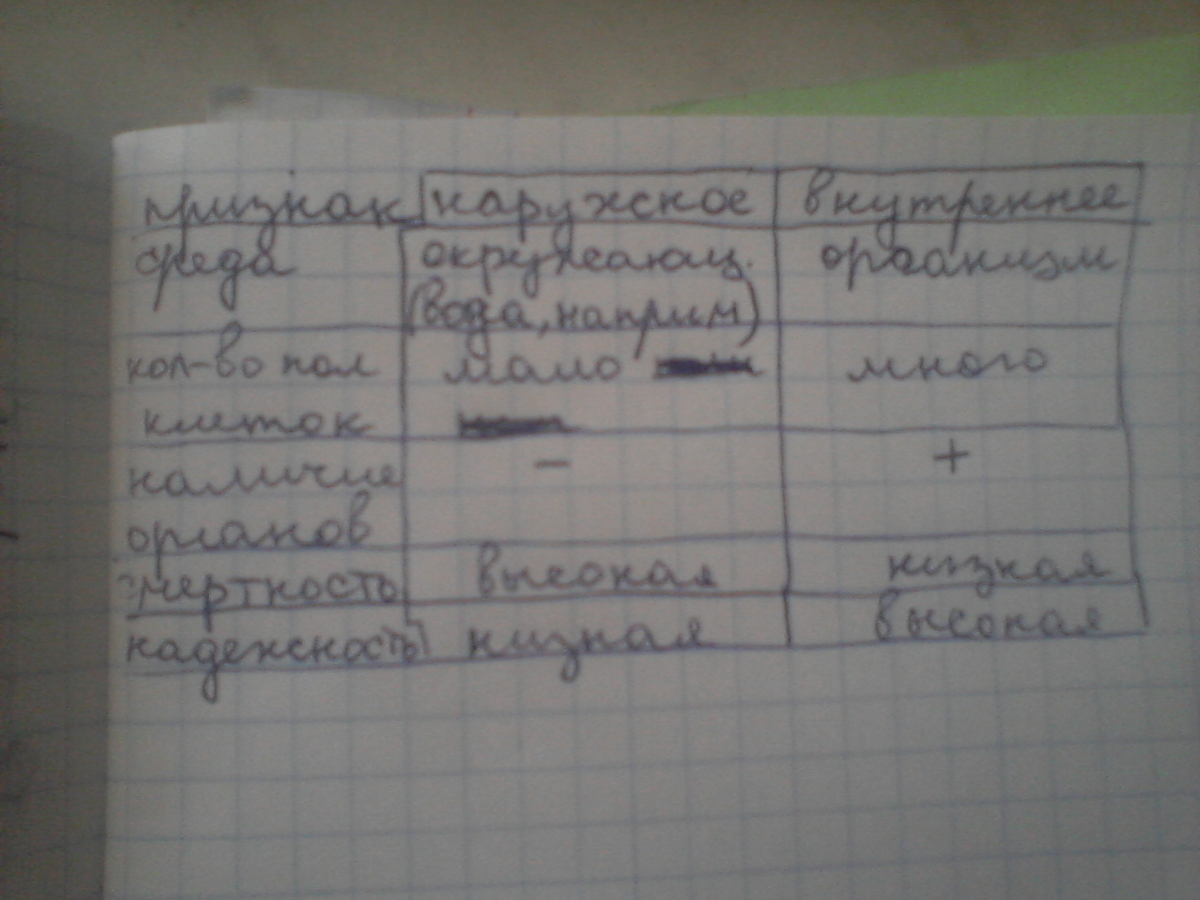 признак наружское внутреннее
среда окружающ. организм
(вода, наприм)
кол-во пол мало много
клеток
наличие - +
органов
смертность высокая низкая
надежность низкая высокая